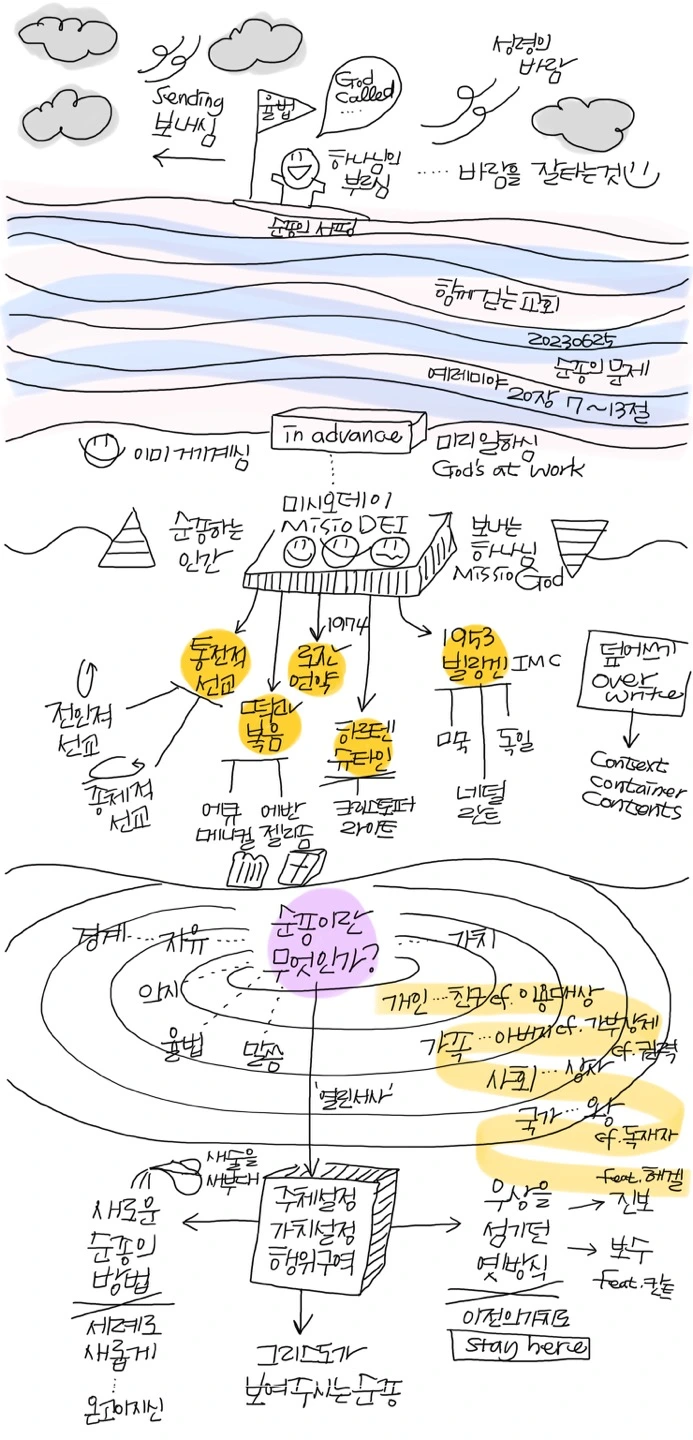 성령의
바람
God
Called
....
율법
Sending
보내심
하나님의
부르심
..... 바람을 잘타는것
순종의 서핑
함께 걷는 교회
20230625
순종의 문제
예레미야 20장 7~13절
이미 거기계심
in advance
미리 일하심
God's at work
미시오데이
MISIO DEI
순종하는
인간
보내는
하나님
Missio God
통전적
선교
1974
로잔
언약
1953
빌링겐 IMC
덮어쓰기
over
write
전인적
선교
총체적
선교
떡과
복음
하르텐
슈타인
미국
독일
네덜
란드
에큐
메니컬
에반
젤리즘
크리스토퍼
라이트
Context
container
Contents
순종이란
무엇인가?
경계 ... 자유
가치
의지
율법
말씀
개인 ... 친구 cf. 이용대상
가족 ... 아버지 cf. 가부장제
cf. 권력
사회 ... 상사
국가 ... 왕
cf. 독재자
'열린서사'
새술을
새부대
새로운
순종의
방법
세례로
새롭게
온고이지신
주체설정
가치설정
행위구역
그리스도가
보여주시는 순종
우상을
섬기던
옛방식
feat. 헤겔
진보
보수
feat. 칸트
이전의가치로
stay here